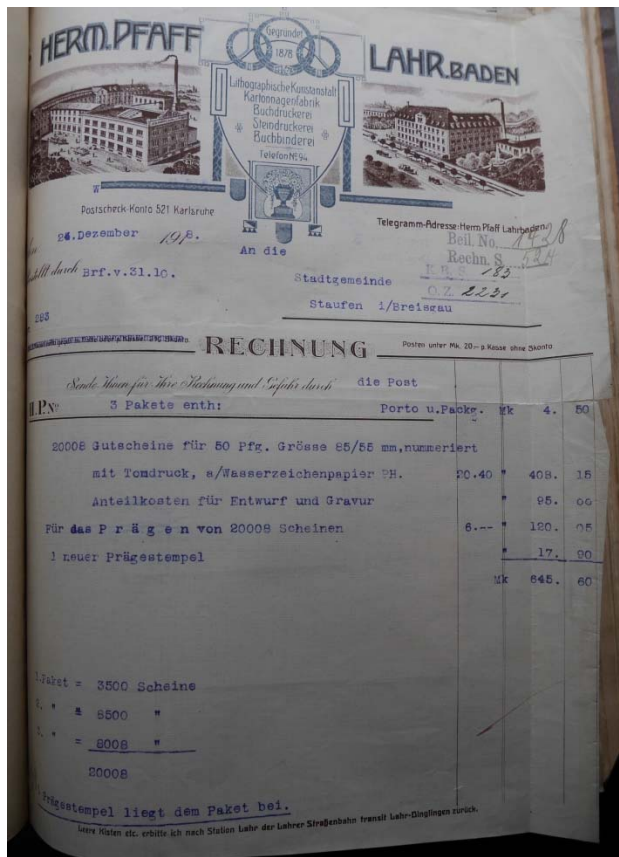 HERM. PFAFF
Gegründet
1878
LAHR. BADEN
Lithographische Kunstanstalt
Kartonnagenfabrik
Buchdruckerei
Steindruckerei
Buchbinderei
Telefon No 94
Postscheck-Konto 521 Karlsruhe
Telegramm-Adresse: Herm Pfaff Lahrbaden
24. Dezember 1918.
Beil. No. 1428
An die
Rechn. S. 524
durch Brf.v.31.10.
Stadtgemeinde
K. B. S. 185
O. Z. 2231
Staufen i/Breisgau
293
RECHNUNG
Posten unter Mk. 20.— p. Kasse ohne Skonto
Sende Ihnen für Ihre Rechnung und Gefahr durch die Post
H.P. No
3 Pakete enth: Porto u.Packg. Mk 4. 50
20008 Gutscheine für 50 Pfg. Grösse 85/55 mm,nummeriert
mit Tomdruck, a/Wasserzeichenpapier PH. 20.40 " 408. 15
Anteilkosten für Entwurf und Gravur " 95. 00
Für das P r ä g e n von 20008 Scheinen 6.-- " 120. 05
1 neuer Prägestempel " 17. 90
Mk 645. 60
1.Paket = 3500 Scheine
2. " = 8500 "
3. " = 8008 "
20008
Prägestempel liegt dem Paket bei.
Leere Kisten etc. erbitte ich nach Station Lahr der Lahrer Straßenbahn transit Lahr-Dinglingen zurück.